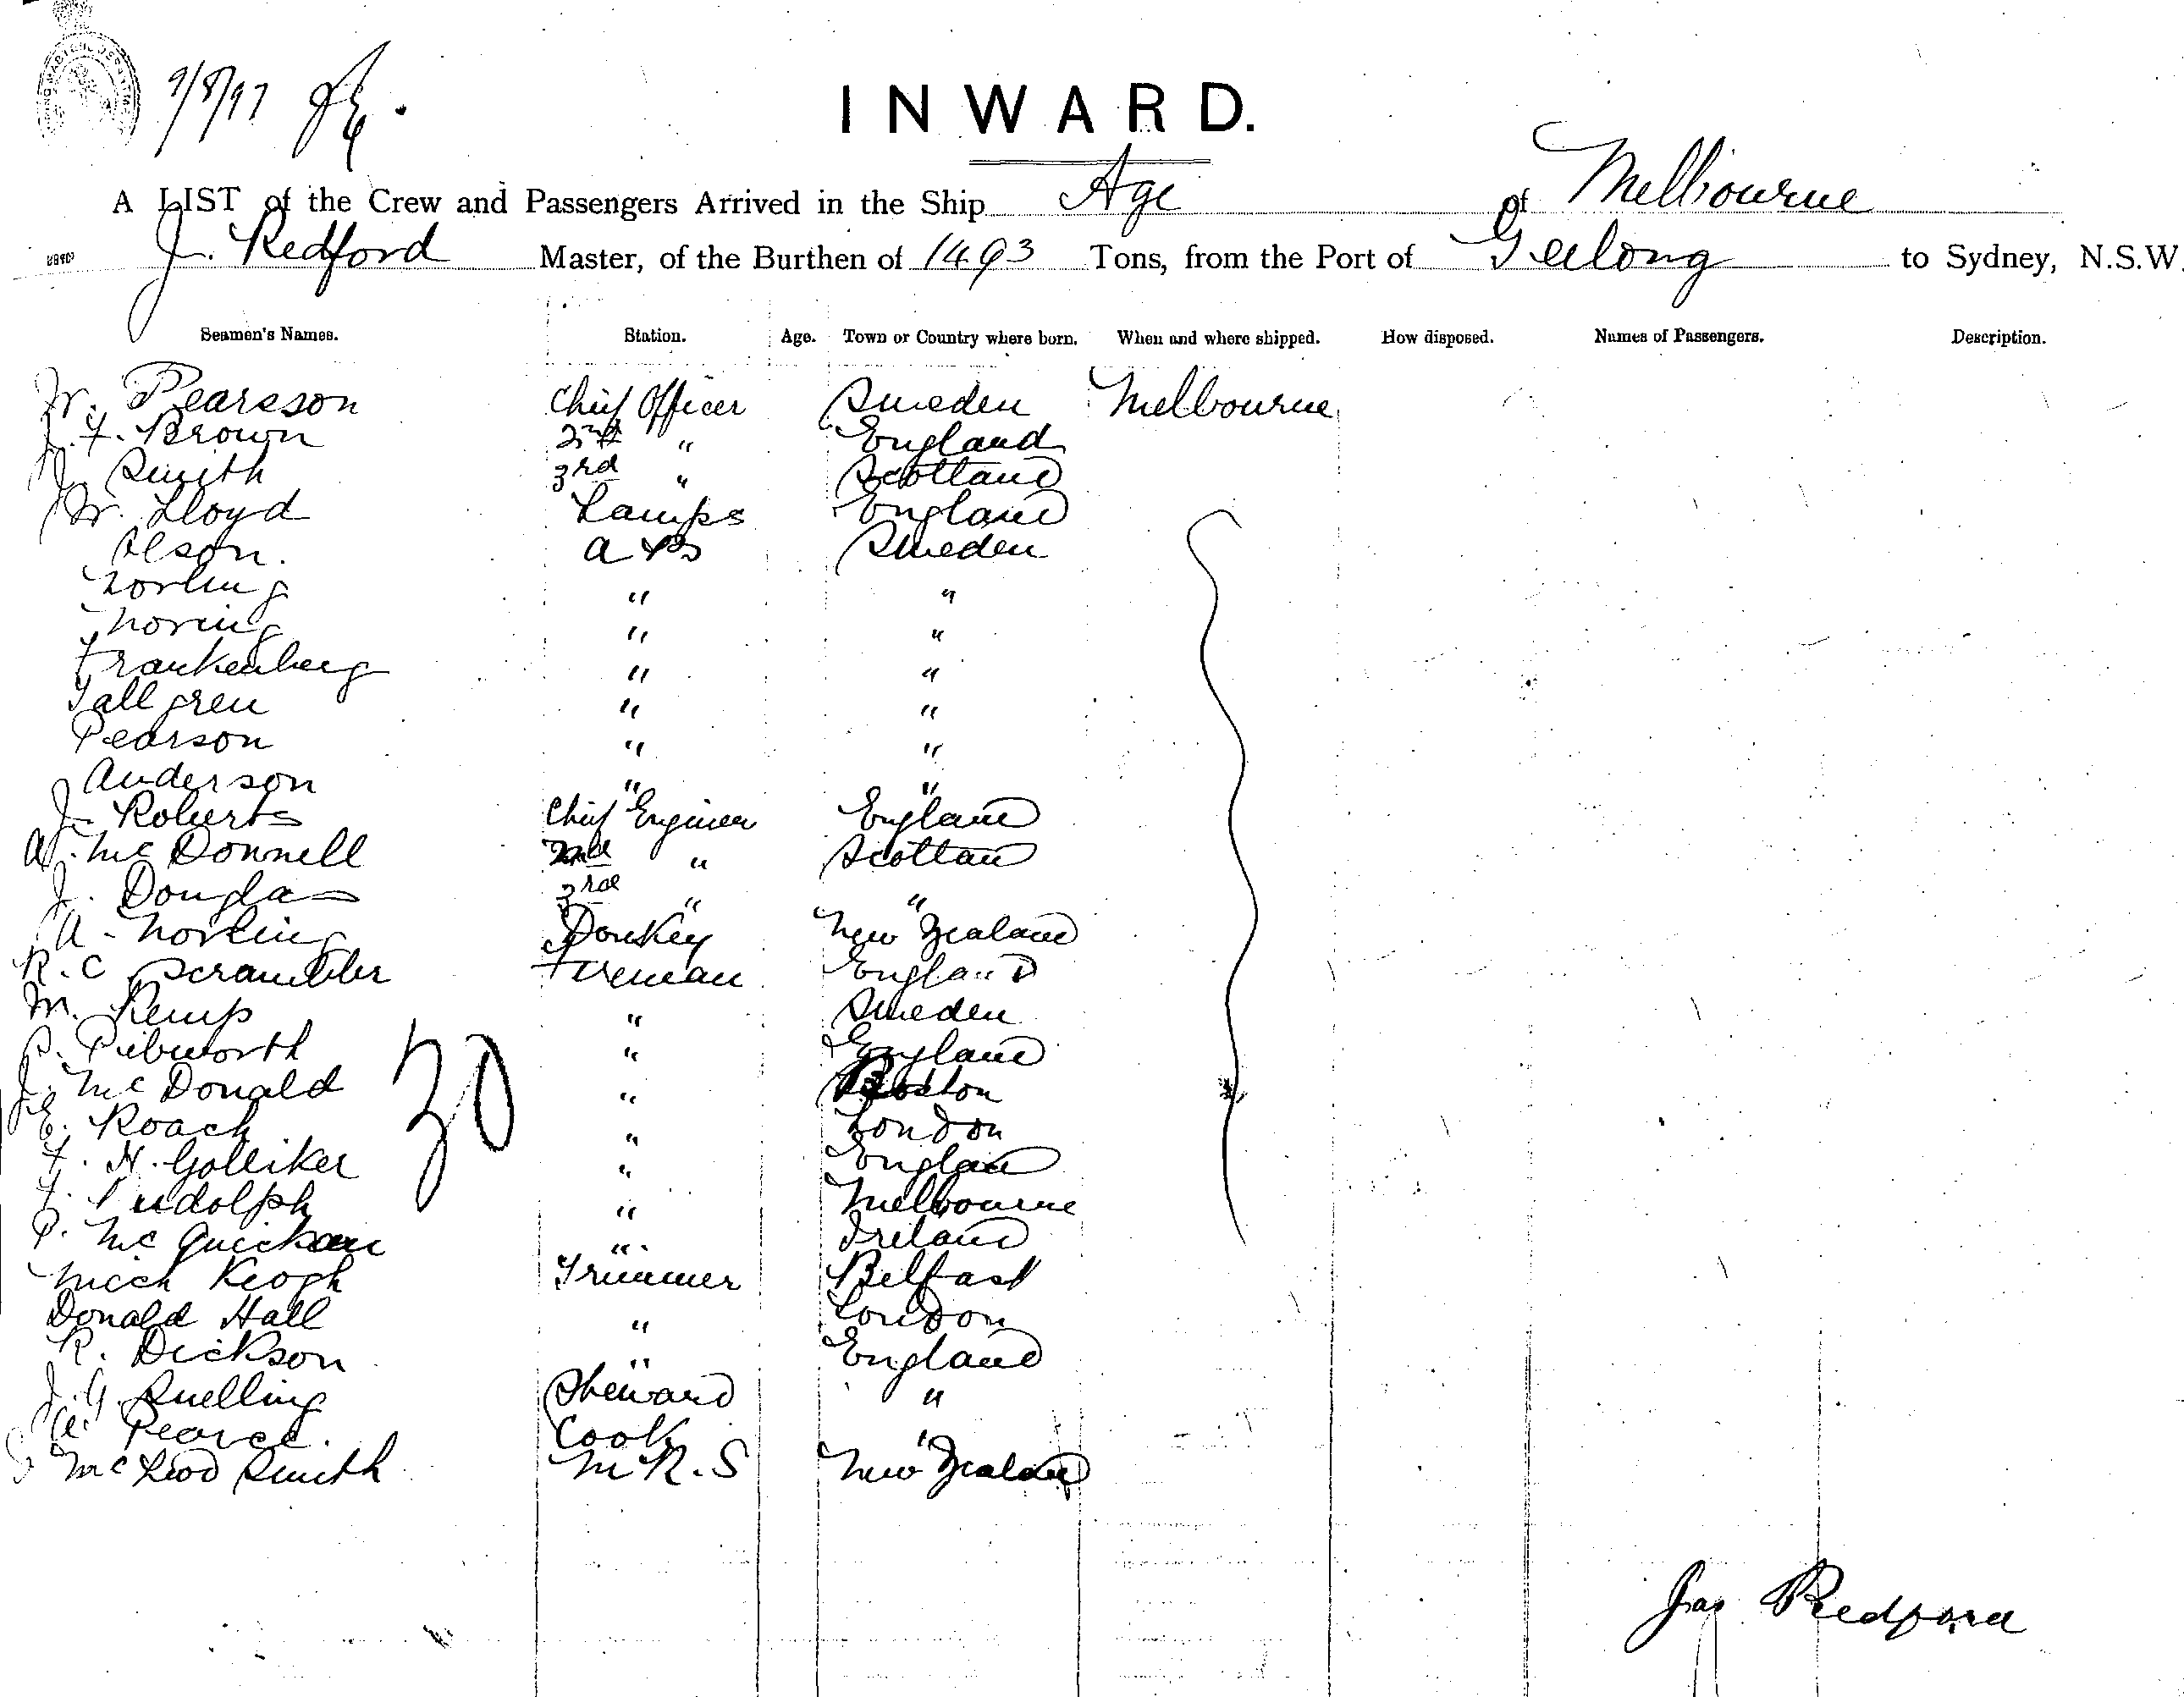 9/8/97
INWARD.
A LIST of the Crew and Passengers Arrived in the Ship Age of Melbourne
J. Redford Master, of the Burthen of 1493 Tons, from the Port of Geelong to Sydney, N.S.W.
Seamen's Names. Station. Age. Town or Country where born. When and where shipped. How disposed. Names of Passengers. Description.
W. Pearsson Chief Officer Sweden Melbourne
J. F. Brown 2nd " England
J. Smith 3rd " Scotland
W. Lloyd Lamps England
Olson. A & B Sweden
Norling " "
Noring " "
Frankenberg " "
Tallgren " "
Pearson " "
Anderson " "
J. Roberts Chief Engineer England
A. McDonnell 2nd " Scotland
J. Douglas 3rd " "
A. Norling Donkey New Zealand
R. C. Scrambler Fireman England
M. Kemp " Sweden
P. Pibworth " England
J. McDonald " Boston
E. Roach " London
F. H. Golliker " England
J. Rudolph " Melbourne
P. McGuickan " Ireland
Mick Keogh Trimmer Belfast
Donald Hall " London
R. Dickson " England
J. G. Snelling Steward "
Pearce. Cook "
McLeod Smith M R. S New Zealand
30
Jas Redford